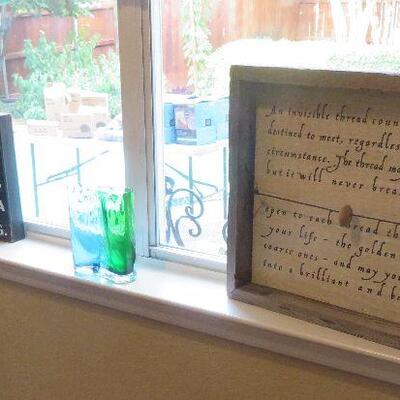 A
G.
An invisible thread
destined to meet, regardles
circumstance. The thread ma
but it will never brea
open to each thread th
your life - the golden
coarse ones - and may you
into a brilliant and be